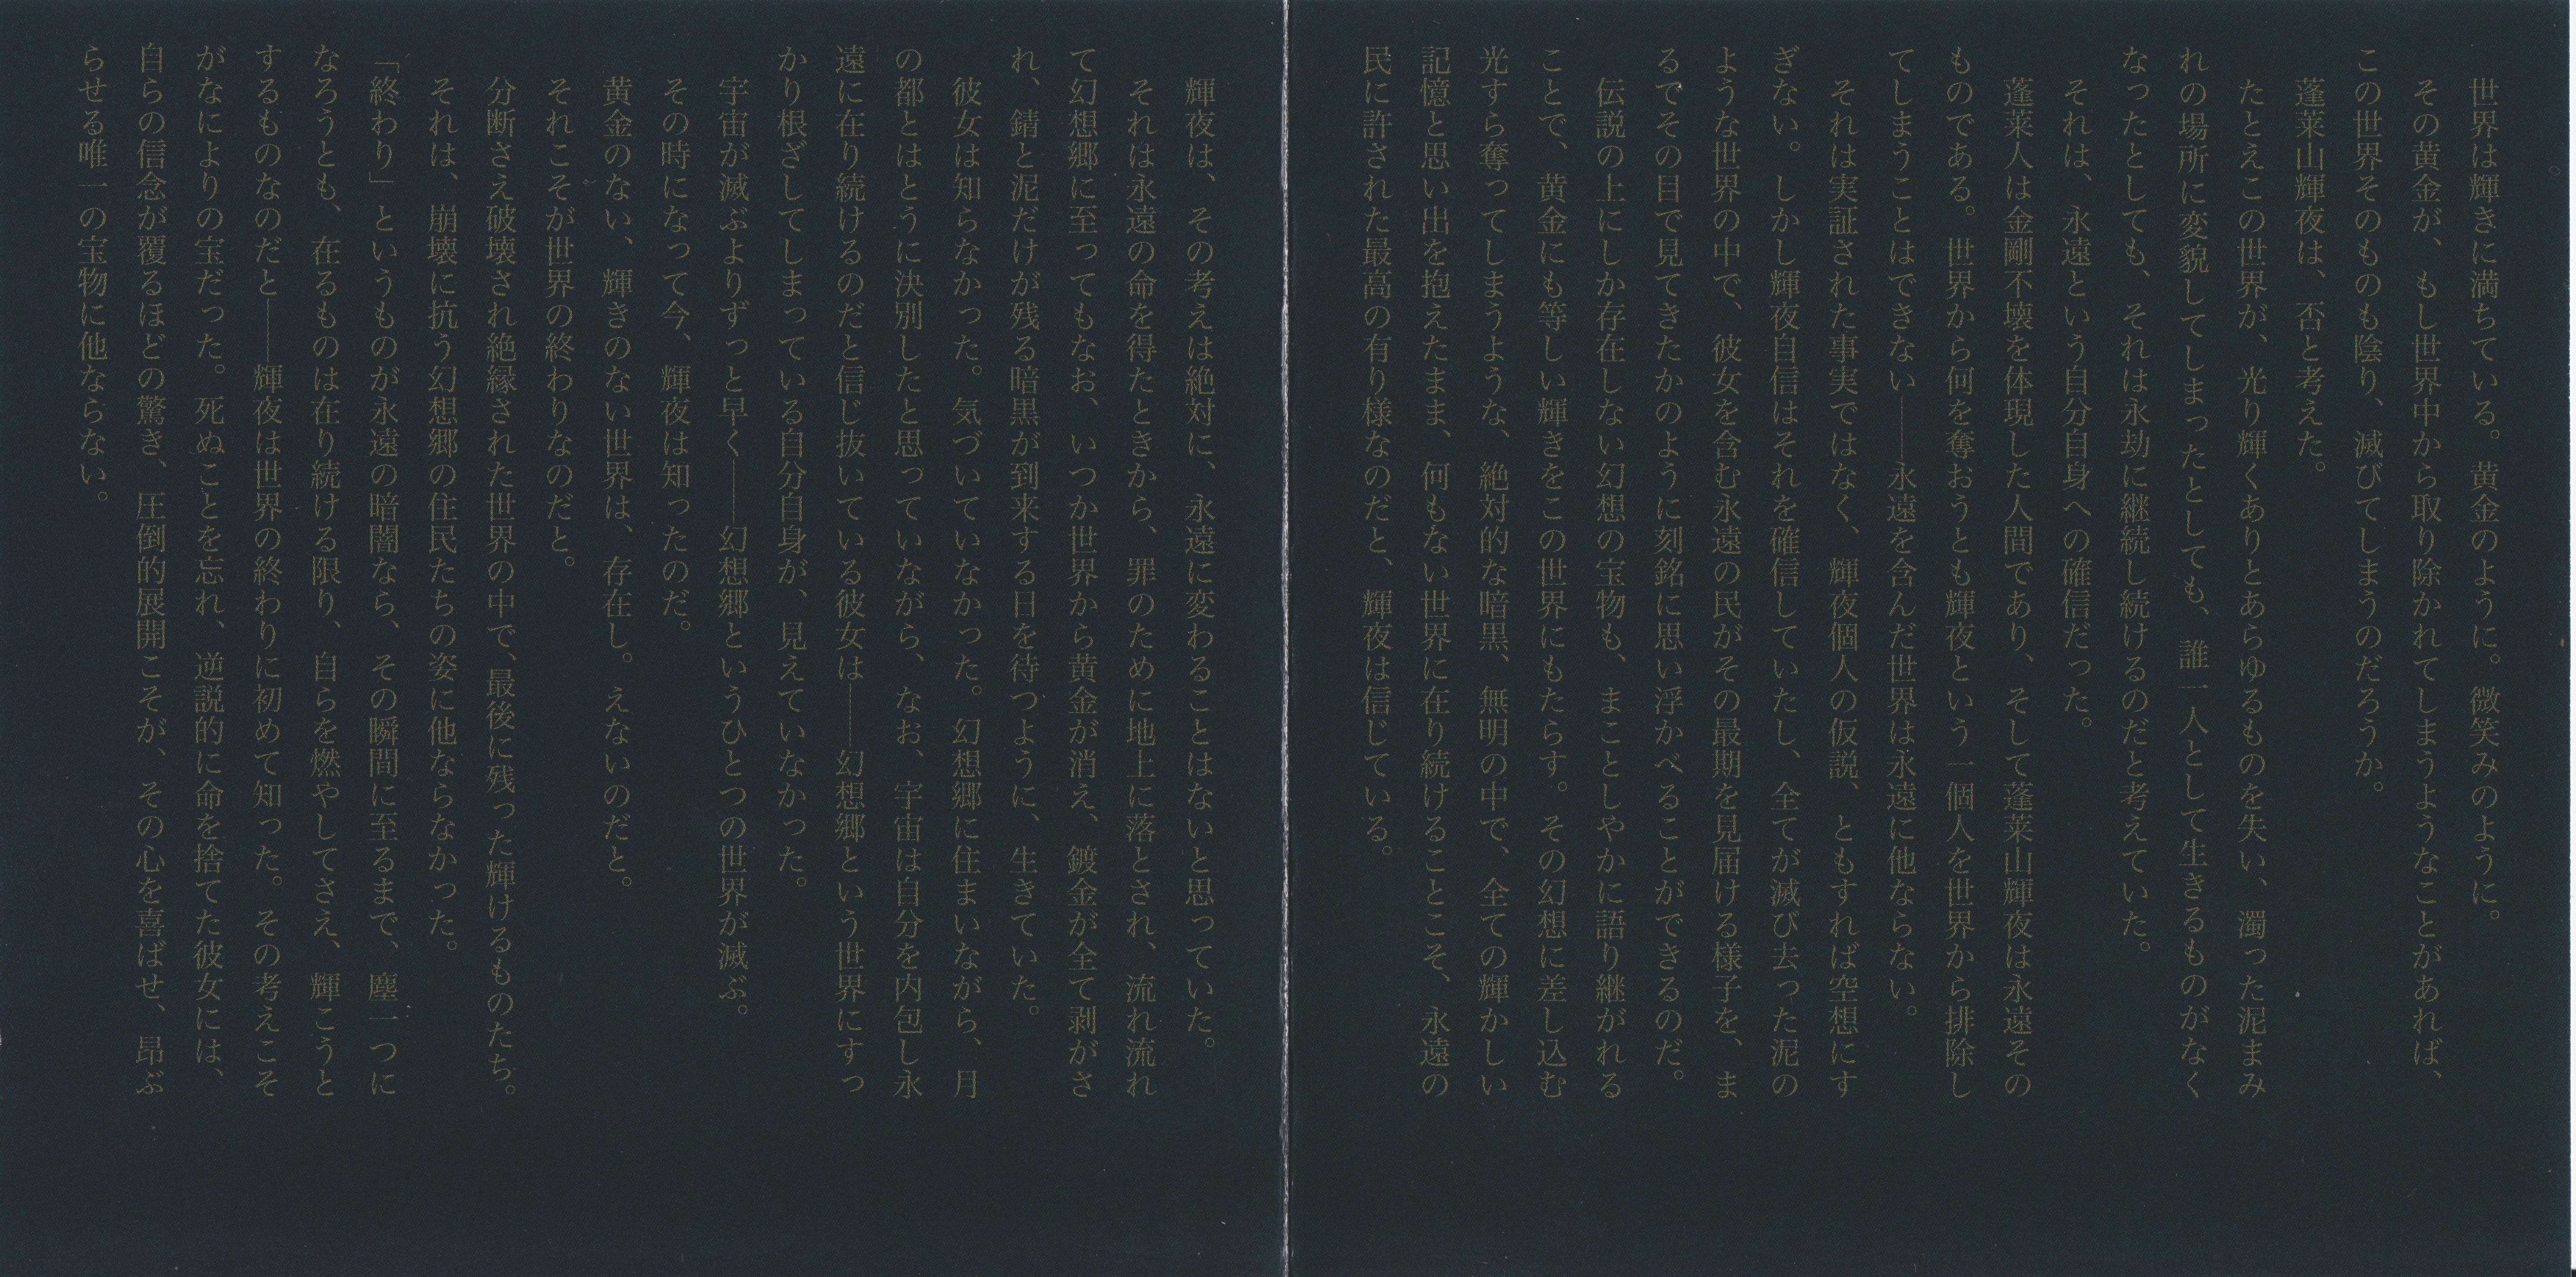 世界は輝きに満ちている。黄金のように。微笑みのように。
その黄金が、もし世界中から取り除かれてしまうようなことがあれば、
この世界そのものも陰り、滅びてしまうのだろうか。
蓬莱山輝夜は、否と考えた。
たとえこの世界が、光り輝くありとあらゆるものを失い、濁った泥まみ
れの場所に変貌してしまったとしても、誰一人として生きるものがなく
なったとしても、それは永劫に継続し続けるのだと考えていた。
それは、永遠という自分自身への確信だった。
蓬莱人は金剛不壊を体現した人間であり、そして蓬莱山輝夜は永遠その
ものである。世界から何を奪おうとも輝夜という一個人を世界から排除し
てしまうことはできない――永遠を含んだ世界は永遠に他ならない。
それは実証された事実ではなく、輝夜個人の仮説、ともすれば空想にす
ぎない。しかし輝夜自信はそれを確信していたし、全てが滅び去った泥の
ような世界の中で、彼女を含む永遠の民がその最期を見届ける様子を、ま
るでその目で見てきたかのように刻銘に思い浮かべることができるのだ。
伝説の上にしか存在しない幻想の宝物も、まことしやかに語り継がれる
ことで、黄金にも等しい輝きをこの世界にもたらす。その幻想に差し込む
光すら奪ってしまうような、絶対的な暗黒、無明の中で、全ての輝かしい
記憶と思い出を抱えたまま、何もない世界に在り続けることこそ、永遠の
民に許された最高の有り様なのだと、輝夜は信じている。
輝夜は、その考えは絶対に、永遠に変わることはないと思っていた。
それは永遠の命を得たときから、罪のために地上に落とされ、流れ流れ
て幻想郷に至ってもなお、いつか世界から黄金が消え、鍍金が全て剥がさ
れ、錆と泥だけが残る暗黒が到来する日を待つように、生きていた。
彼女は知らなかった。気づいていなかった。幻想郷に住まいながら、月
の都とはとうに決別したと思っていながら、なお、宇宙は自分を内包し永
遠に在り続けるのだと信じ抜いている彼女は――幻想郷という世界にすっ
かり根ざしてしまっている自分自身が、見えていなかった。
宇宙が滅ぶよりずっと早く――幻想郷というひとつの世界が滅ぶ。
その時になって今、輝夜は知ったのだ。
黄金のない、輝きのない世界は、存在し。えないのだと。
それこそが世界の終わりなのだと。
分断さえ破壊され絶縁された世界の中で、最後に残った輝けるものたち。
それは、崩壊に抗う幻想郷の住民たちの姿に他ならなかった。
「終わり」というものが永遠の暗闇なら、その瞬間に至るまで、塵一つに
なろうとも、在るものは在り続ける限り、自らを燃やしてさえ、輝こうと
するものなのだと――輝夜は世界の終わりに初めて知った。その考えこそ
がなによりの宝だった。死ぬことを忘れ、逆説的に命を捨てた彼女には、
自らの信念が覆るほどの驚き、圧倒的展開こそが、その心を喜ばせ、昂ぶ
らせる唯一の宝物に他ならない。